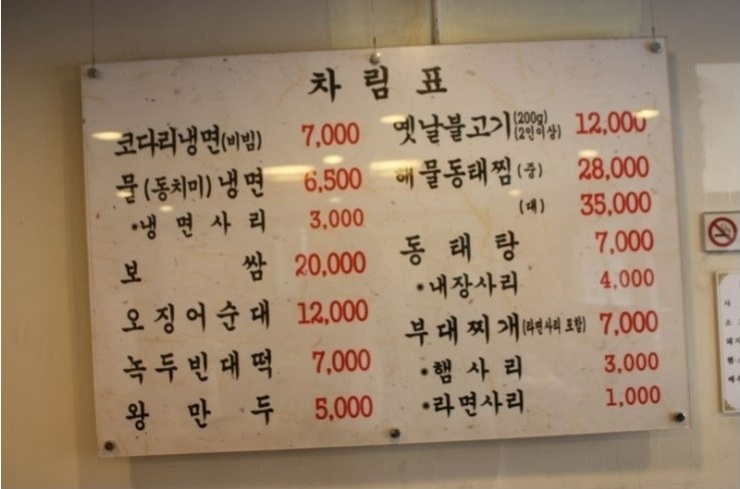 차림표
코다리냉면(비빔) 7,000
물(동치미)냉면 6,500
•냉면사리 3,000
보쌈 20,000
오징어순대 12,000
녹두빈대떡 7,000
왕만두 5,000
옛날불고기(200g)(2인이상) 12,000
해물동태찜(중) 28,000
(대) 35,000
동태탕 7,000
•내장사리 4,000
부대찌개(라면사리 포함) 7,000
•햄사리 3,000
•라면사리 1,000